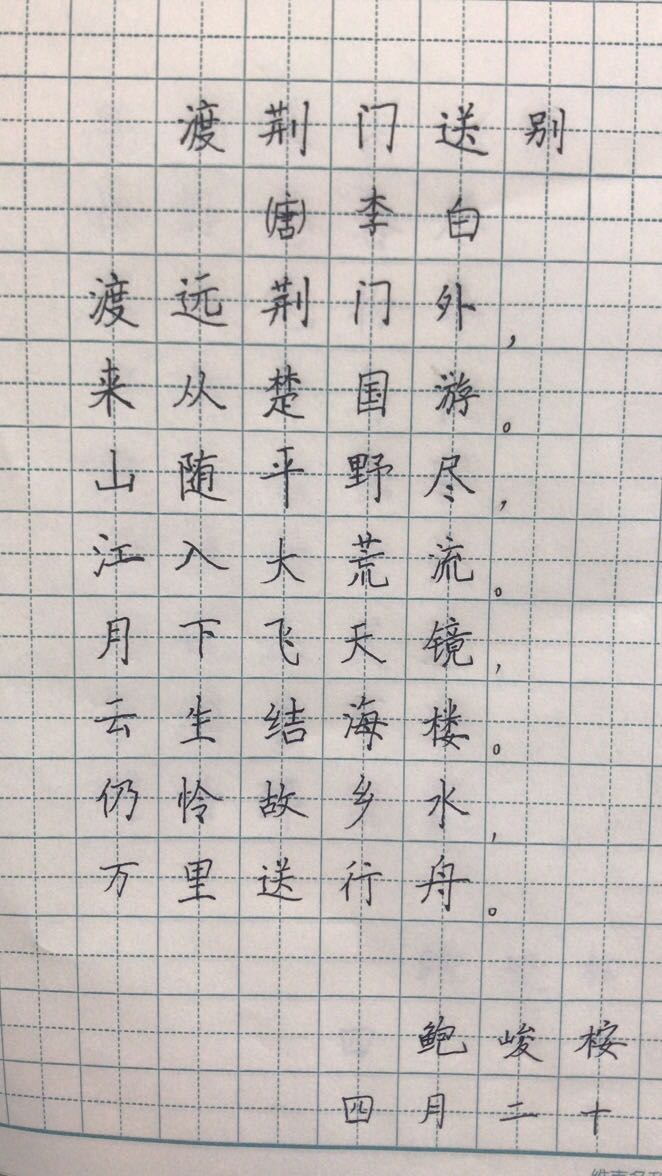 渡荆门送别
(唐)李白
渡远荆门外，
来从楚国游。
山随平野尽，
江入大荒流。
月下飞天镜，
云生结海楼。
仍怜故乡水，
万里送行舟。
鲍峻桉
四月二十